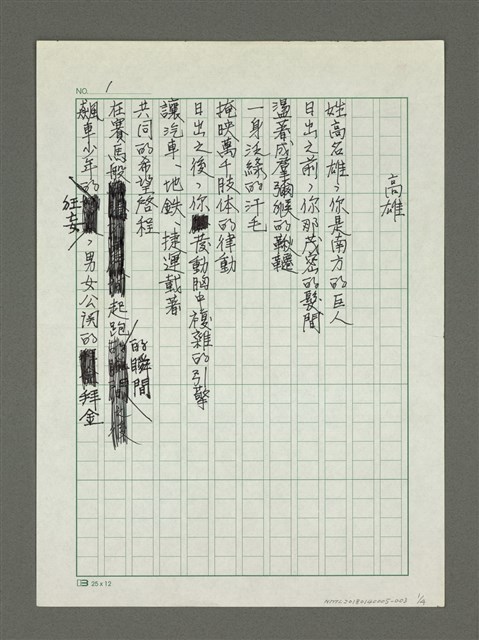 NO. 1
高雄
姓高名雄，你是南方的巨人
日出之前，你那茂密的髮間
盪著成羣獼猴的鞦韆
一身沃綠的汗毛
掩映萬千肢体的律動
日出之後，你發動胸中複雜的引擎
讓汽車、地鉄、捷運載著
共同的希望啓程
在賽馬般起跑的瞬間
飆車少年的狂妄，男女公関的拜金
25 x 12
NMTL20180160005-003